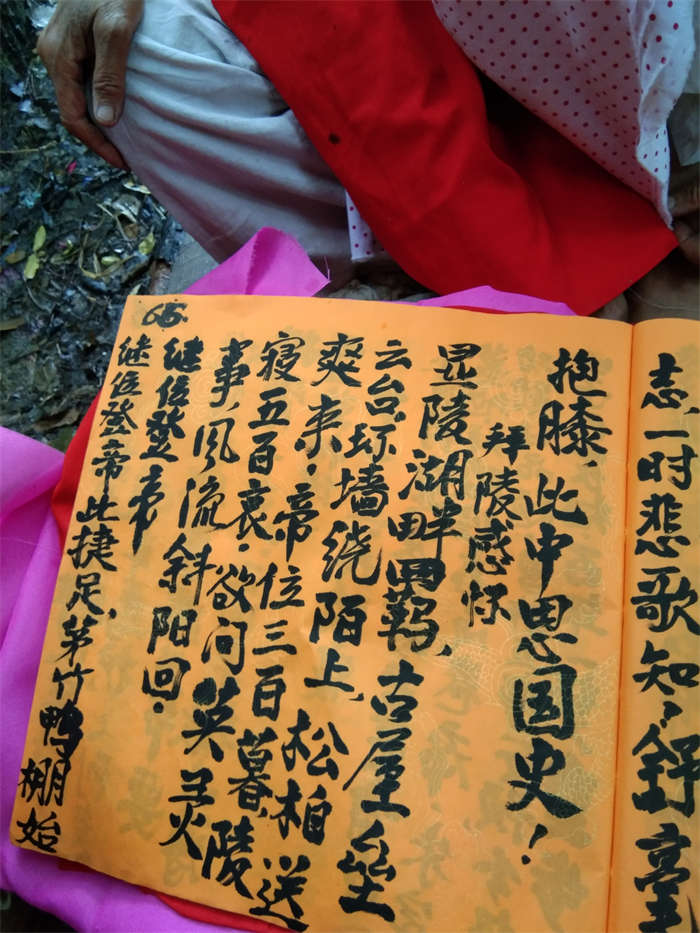 志,一时悲歌知,舒
抱膝,此中思国史!
拜陵感怀
显陵湖畔羁,古屋垒
云台.坏墙绕陌上,松柏送
爽来.帝位三百暮,陵
寝五百哀.欲问英灵
事,风流斜阳回.
继位登帝
继位登帝此捷足,茅竹鸭棚始
65